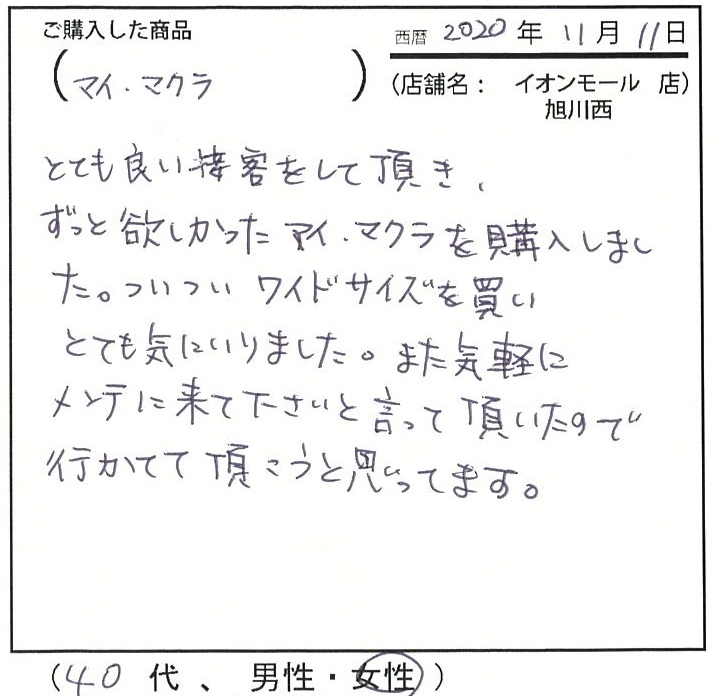 ご購入した商品
西暦 2020 年 11 月 11 日
(マイ・マクラ)
(店舗名: イオンモール 店)
旭川西
とても良い接客をして頂き、
ずっと欲しかったマイ・マクラを購入しまし
た。ついつい ワイドサイズを買い
とても気にいりました。また気軽に
メンテに来て下さいと言って頂いたので
行かてて頂こうと思ってます。
(40 代、男性・女性)